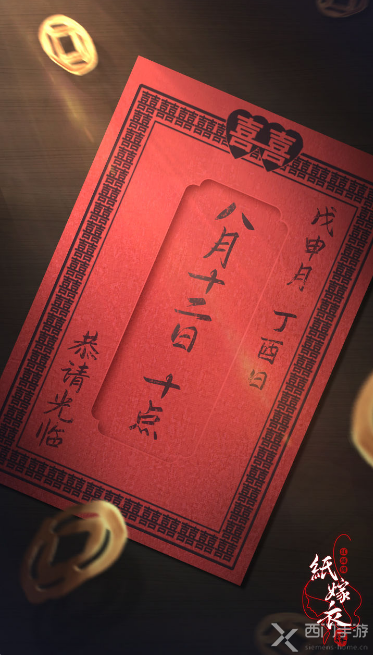 囍
戊申月 丁酉日
八月十二日 十点
恭请光临
紙嫁衣
西门手游
siemens-home.cn